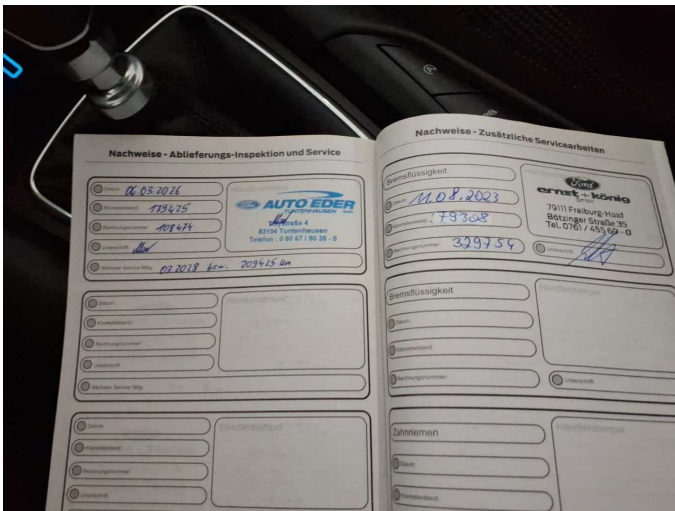 Nachweise - Ablieferungs-Inspektion und Service
Datum 06.03.2026
Kilometerstand 179425
Rechnungsnummer 108474
Unterschrift
Nächster Service fällig 03.2028 bzw. 209425 km
Händlerstempel
AUTO EDER
TUNTENHAUSEN GmbH
83104 Tuntenhausen
Telefon : 0 80 67 / 90 35 - 0
Datum
Kilometerstand
Rechnungsnummer
Unterschrift
Nächster Service fällig
Händlerstempel
Datum
Kilometerstand
Rechnungsnummer
Unterschrift
Händlerstempel
Nachweise - Zusätzliche Servicearbeiten
Bremsflüssigkeit
Datum 11.08.2023
Kilometerstand 79308
Rechnungsnummer 329754
Händlerstempel
Ford
ernst + könig
GmbH
79111 Freiburg-Haid
Bötzinger Straße 35
Tel. 0761 / 455 69 - 0
Unterschrift
Bremsflüssigkeit
Datum
Kilometerstand
Rechnungsnummer
Händlerstempel
Unterschrift
Zahnriemen
Datum
Kilometerstand
Händlerstempel